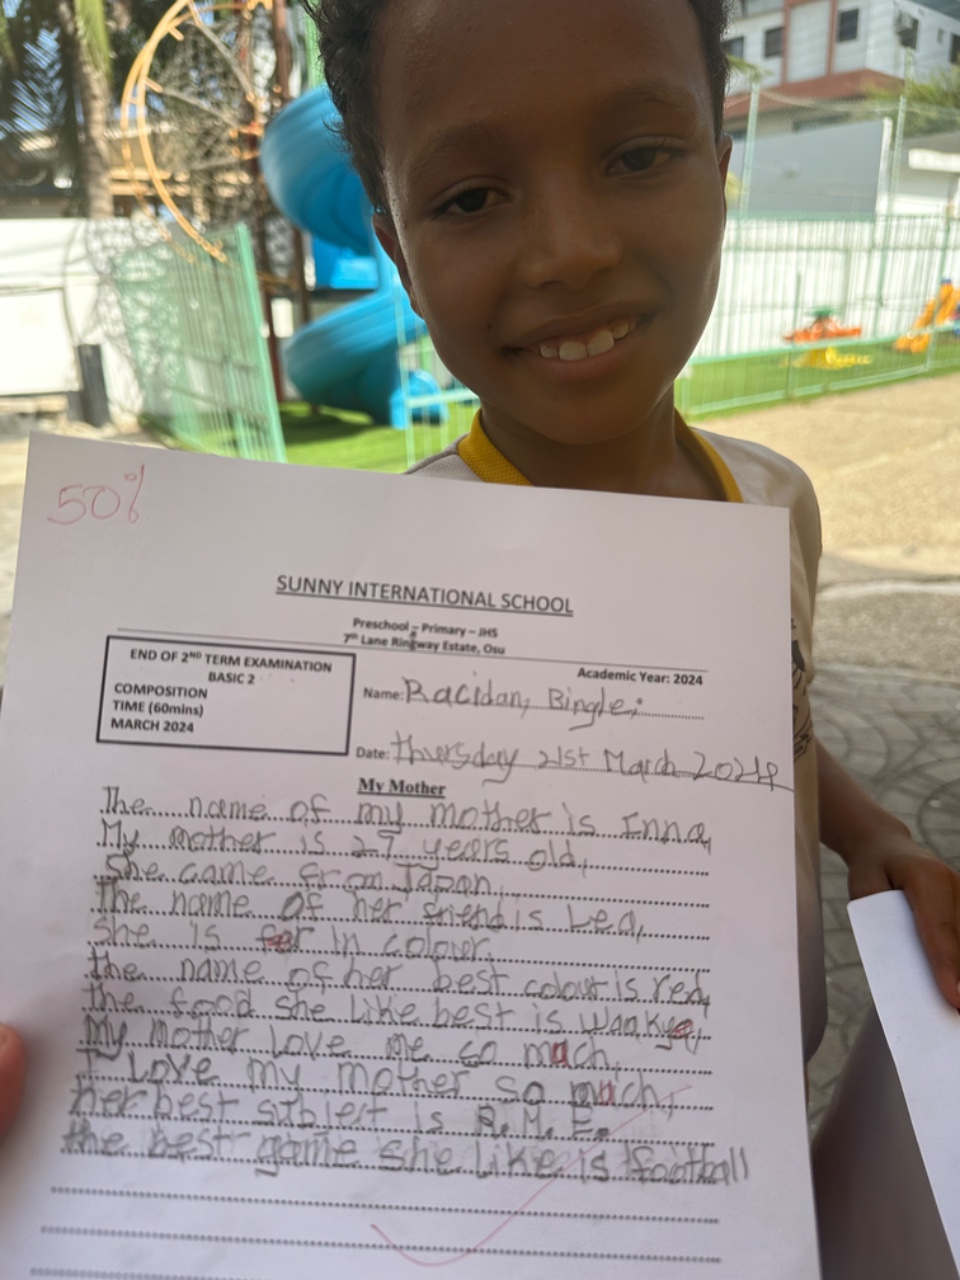 50%
SUNNY INTERNATIONAL SCHOOL
Preschool – Primary – JHS
7th Lane Ringway Estate, Osu
END OF 2ND TERM EXAMINATION
BASIC 2
COMPOSITION
TIME (60mins)
MARCH 2024
Academic Year: 2024
Name: Racidan, Bingle;
Date: thursday 21st March 2024
My Mother
The name of my mother is Inna,
My mother is 27 years old,
She came from Japan,
The name of her friend is Lea,
She is fer in colour,
the name of her best colour is red,
the food she like best is waakye,
My mother love me so much,
I Love my mother so much,
her best subject is R.M.E.
the best game she like is football